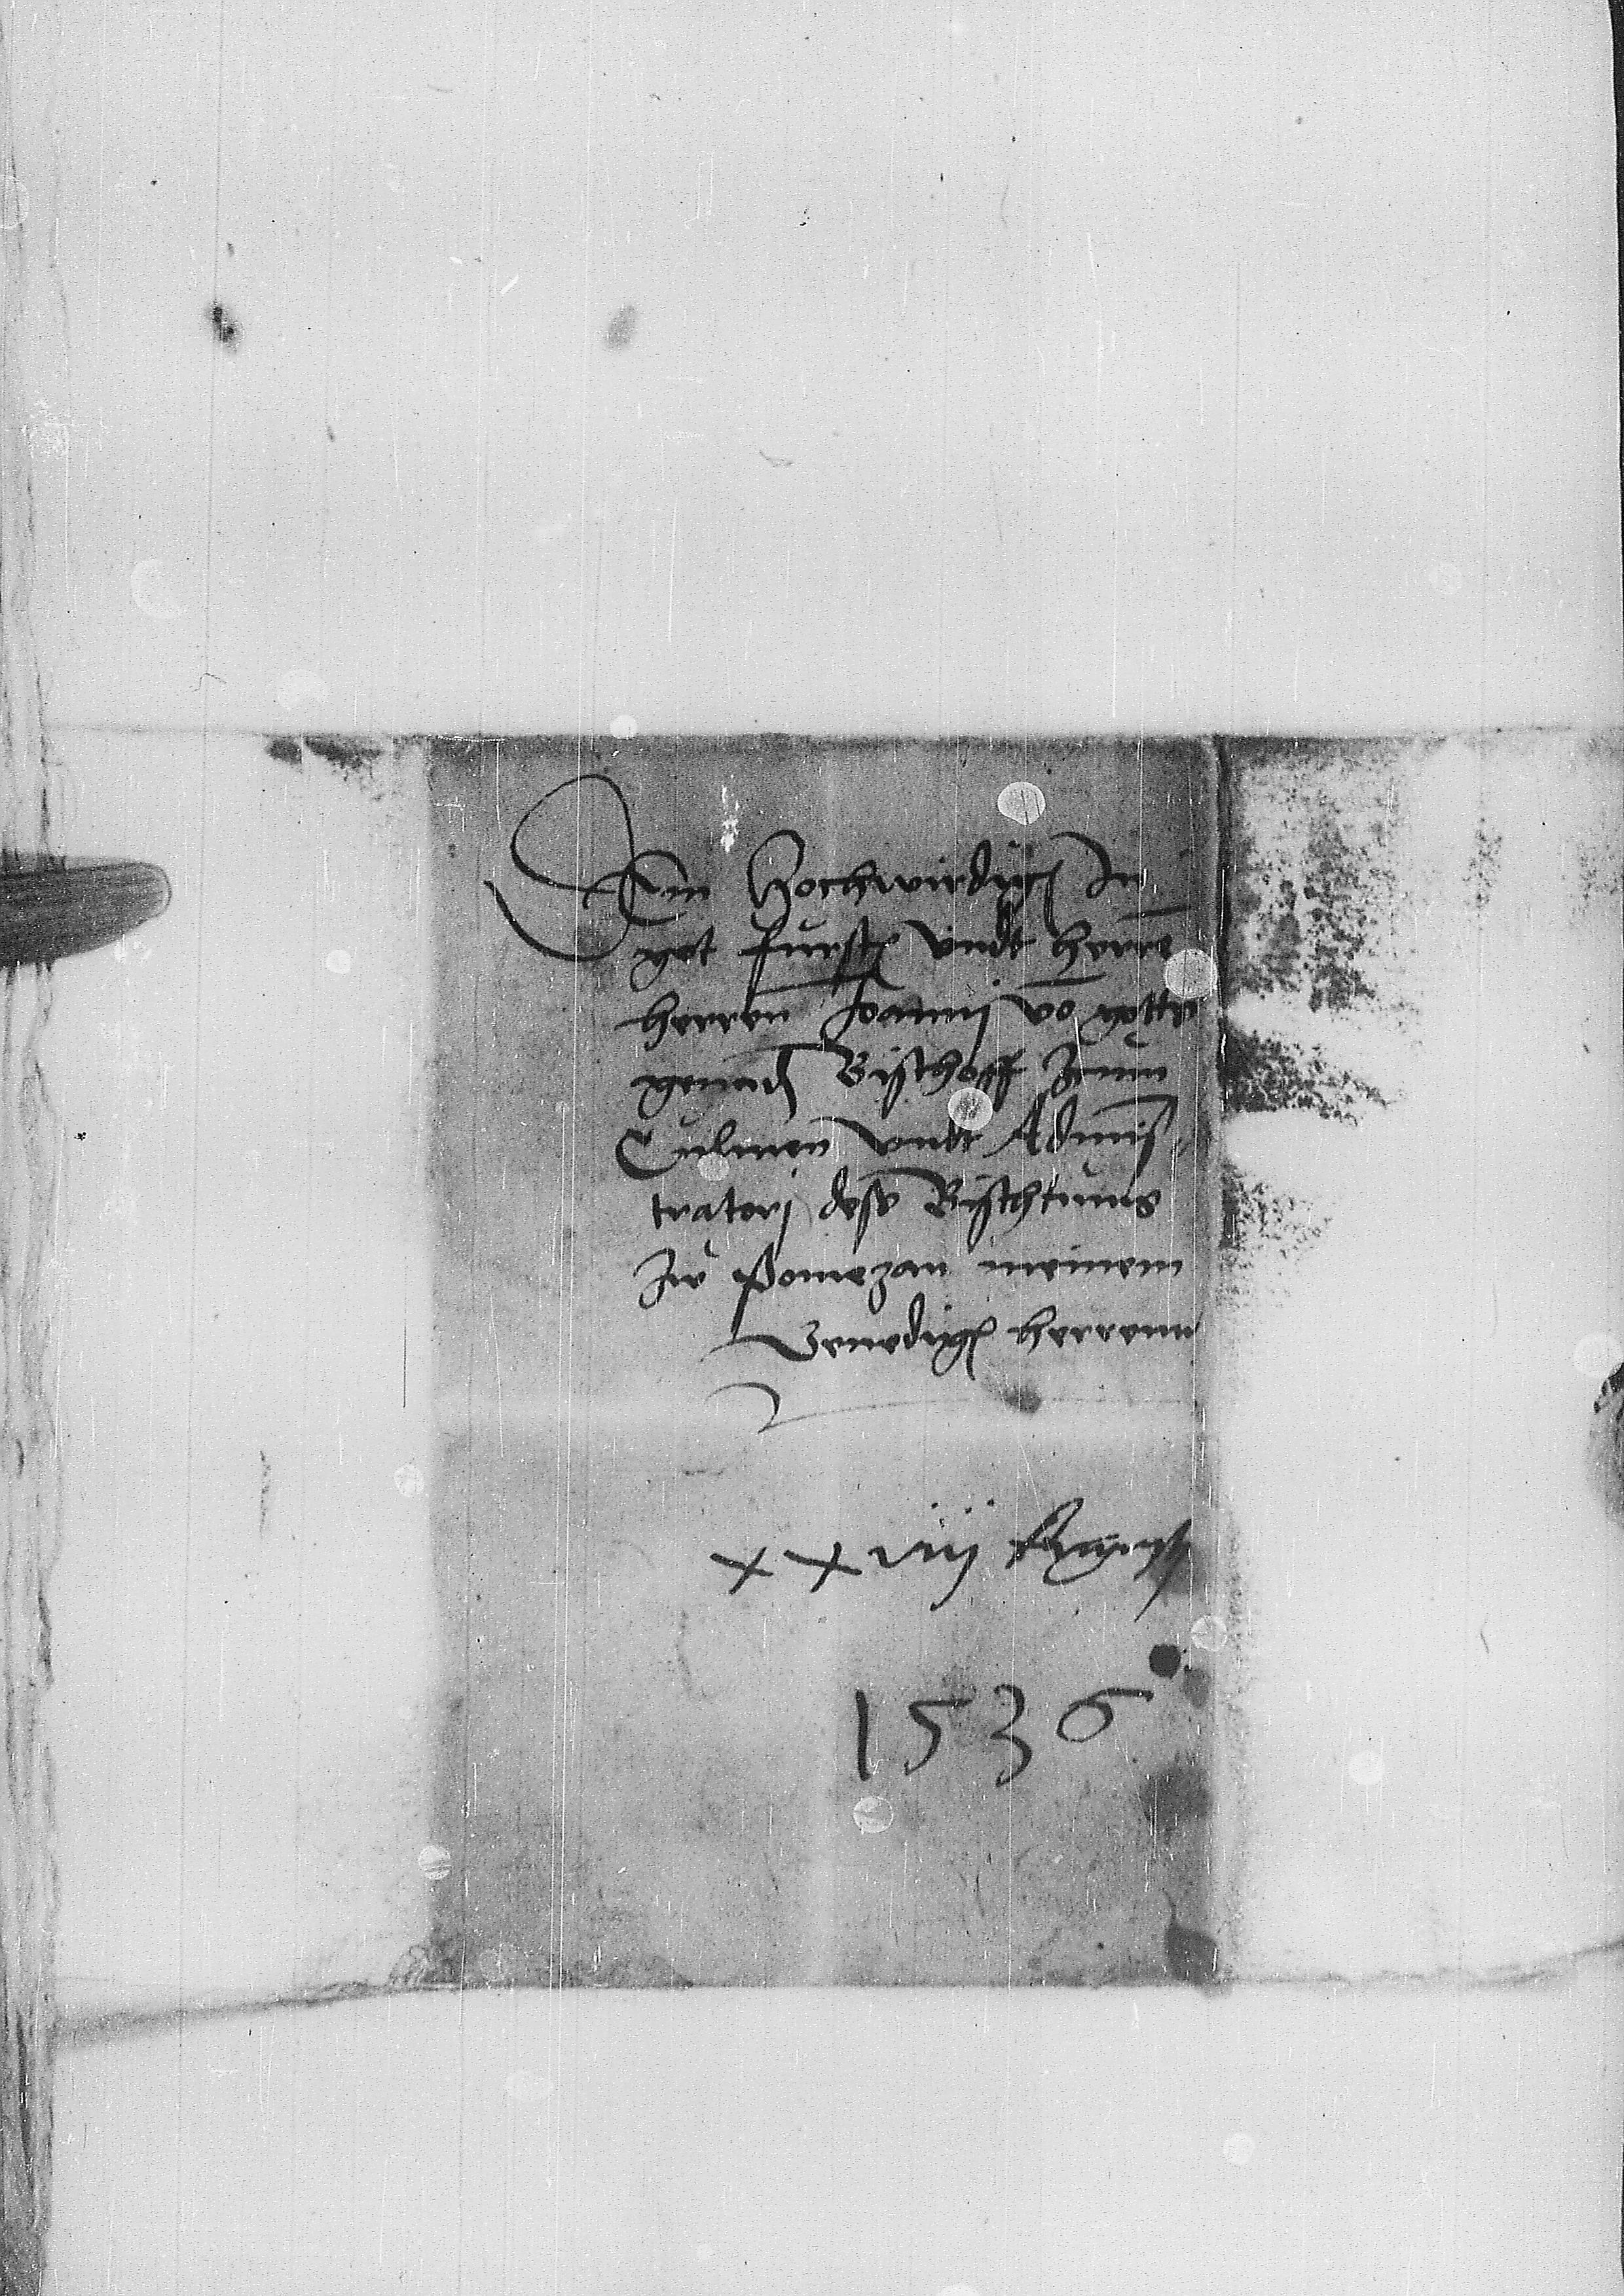 Dem Hochwirdigen In
got fursten vndt herrn
herren Joanni vo gotts
genaden Bischoff Zcum
Culmen vndt Adminis-
tratori dess Bischtums
Zw Pomezan meinem
Genedigen herrenn
xxviij
1536